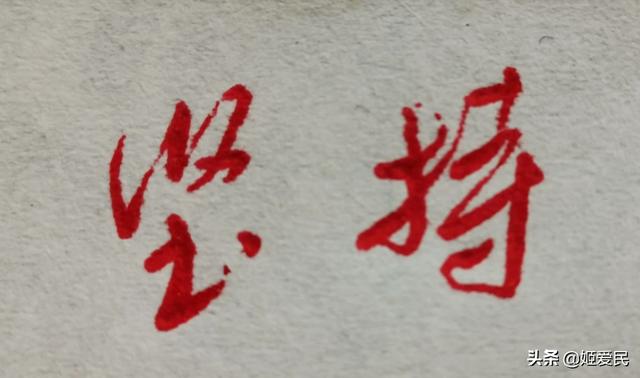 坚持
头条 @姬爱民